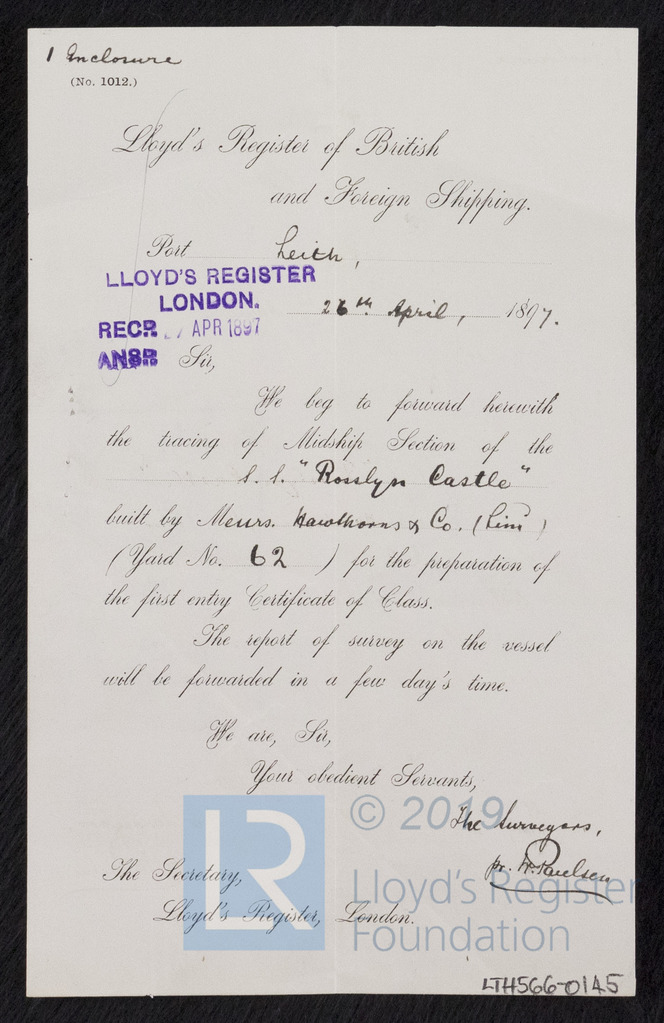 1 Enclosure
(No. 1012.)
Lloyd's Register of British
and Foreign Shipping.
Port Leith,
LLOYD'S REGISTER
LONDON.
26th April, 1897.
RECD 27 APR 1897
ANSD
Sir,
We beg to forward herewith
the tracing of Midship Section of the
S.S. "Rosslyn Castle"
built by Messrs. Hawthorns & Co. (Lim)
(Yard No. 62) for the preparation of
the first entry Certificate of Class.
The report of survey on the vessel
will be forwarded in a few day's time.
We are, Sir,
Your obedient Servants,
© 2019
The Surveyors,
pr. W. Paulsen
The Secretary,
Lloyd's Register, London.
LR
Lloyd's Register
Foundation
LTH566-0145